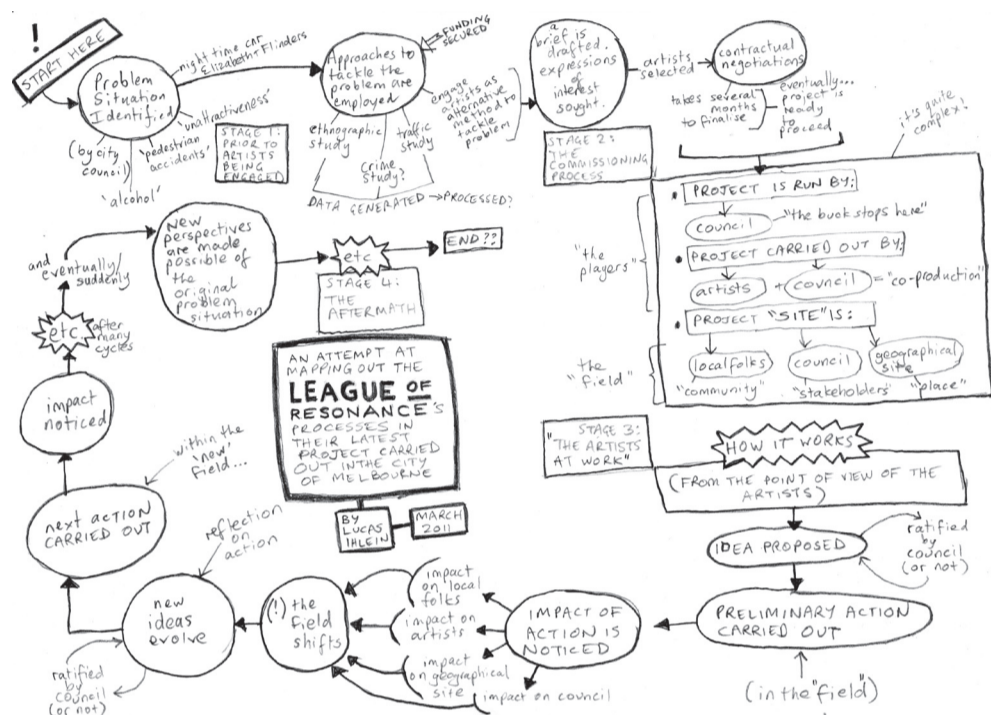 !
START HERE
Problem
Situation
Identified
night time CAT
Elizabeth + Flinders
'unattractiveness'
'pedestrian
accidents'
(by city
council)
'alcohol'
STAGE 1:
PRIOR TO
ARTISTS
BEING
ENGAGED
Approaches to
tackle the
problem are
employed
FUNDING
SECURED
ethnographic
study
crime
study?
traffic
study
engage
artists as
alternative
method to
tackle
problem
DATA GENERATED → PROCESSED?
a
brief is
drafted.
expressions
of
interest
sought.
STAGE 2:
THE
COMMISSIONING
PROCESS
artists
selected
contractual
negotiations
takes several
months
to finalise
eventually...
project is
ready
to
proceed
it's quite
complex!
• PROJECT IS RUN BY:
council
"the buck stops here"
• PROJECT CARRIED OUT BY:
artists + council = "co-production"
• PROJECT "SITE" IS:
local folks
council
geographical
site
"community"
"stakeholders"
"place"
"the
players"
the
"field"
STAGE 3:
"THE ARTISTS
AT WORK"
HOW IT WORKS
(FROM THE POINT OF VIEW OF THE
ARTISTS)
IDEA PROPOSED
ratified
by
council
(or not)
PRELIMINARY ACTION
CARRIED OUT
(in the "field")
IMPACT OF
ACTION IS
NOTICED
impact
on local
folks
impact on
artists
impact
on geographical
site
impact on council
(!) the
field
shifts
new
ideas
evolve
reflection
on
action
ratified
by
council
(or not)
next action
CARRIED OUT
within the
'new'
field...
impact
noticed
etc.
after
many
cycles
and
eventually/
suddenly
New
perspectives
are made
possible of
the
original
problem
situation
etc
END??
STAGE 4:
THE
AFTERMATH
AN ATTEMPT AT
MAPPING OUT THE
LEAGUE OF
RESONANCE'S
PROCESSES IN
THEIR LATEST
PROJECT CARRIED
OUT IN THE CITY
OF MELBOURNE
BY
LUCAS
IHLEIN
MARCH
2011